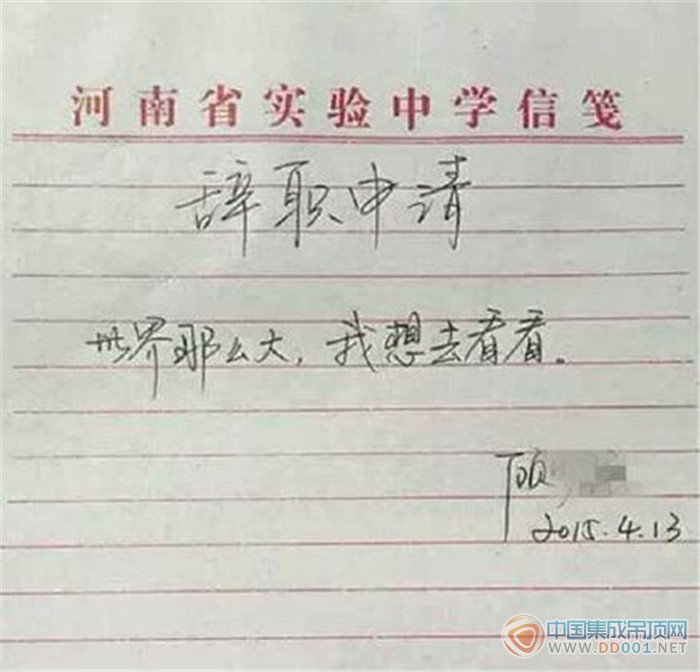 河南省实验中学信笺
辞职申请
世界那么大，我想去看看。
顾
2015.4.13
中国集成吊顶网
WWW.DD001.NET